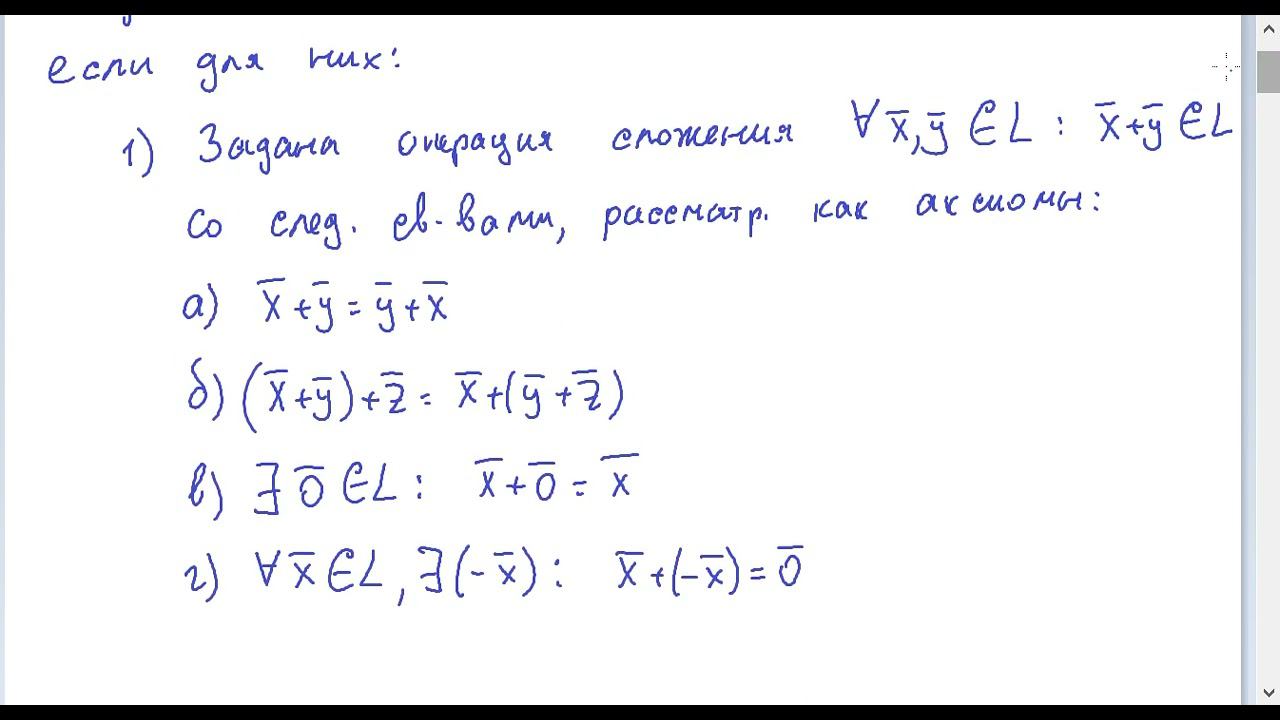 если для них:
1) Задана операция сложения ∀ x̅, y̅ ∈ L : x̅+y̅ ∈ L
со след. св-вами, рассматр. как аксиомы:
а) x̅+y̅ = y̅+x̅
б) (x̅+y̅)+z̅ = x̅+(y̅+z̅)
в) ∃ 0̅ ∈ L : x̅+0̅ = x̅
г) ∀ x̅ ∈ L, ∃ (-x̅) : x̅+(-x̅) = 0̅